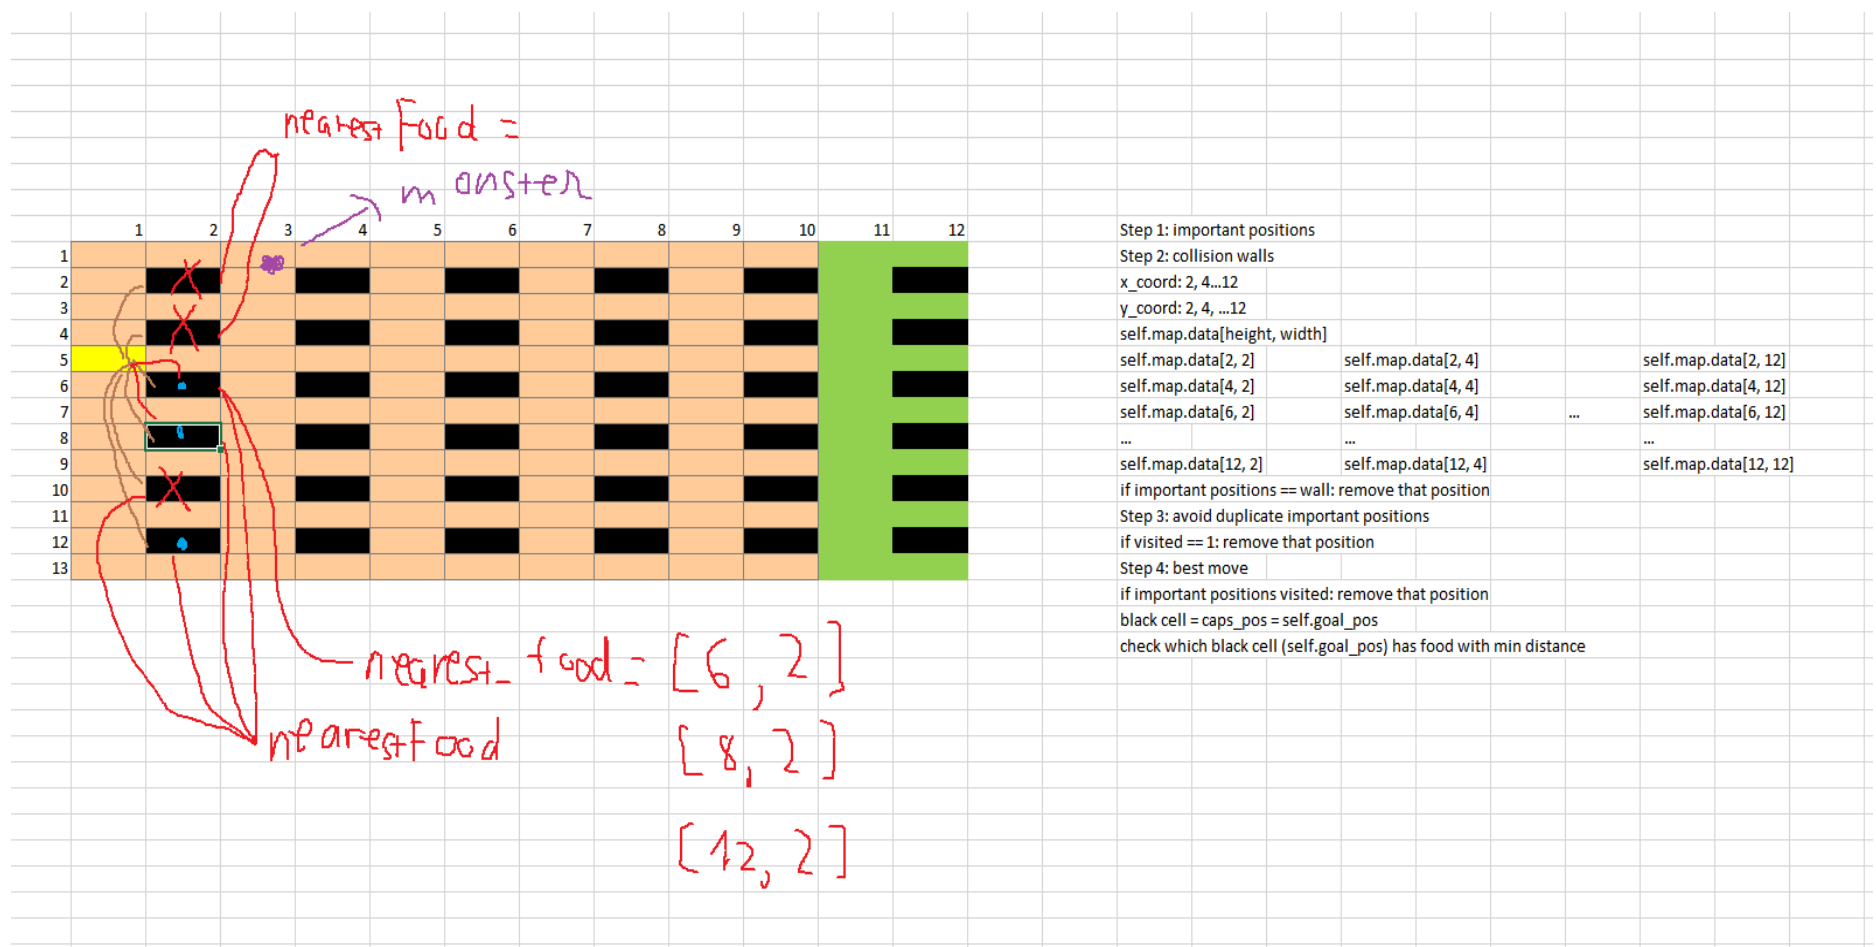 nearestFood =
monster
1 2 3 4 5 6 7 8 9 10 11 12
1
2
3
4
5
6
7
8
9
10
11
12
13
nearest_food = [6, 2]
nearestFood
[8, 2]
[12, 2]
Step 1: important positions
Step 2: collision walls
x_coord: 2, 4...12
y_coord: 2, 4, ...12
self.map.data[height, width]
self.map.data[2, 2] self.map.data[2, 4] self.map.data[2, 12]
self.map.data[4, 2] self.map.data[4, 4] self.map.data[4, 12]
self.map.data[6, 2] self.map.data[6, 4] ... self.map.data[6, 12]
... ... ...
self.map.data[12, 2] self.map.data[12, 4] self.map.data[12, 12]
if important positions == wall: remove that position
Step 3: avoid duplicate important positions
if visited == 1: remove that position
Step 4: best move
if important positions visited: remove that position
black cell = caps_pos = self.goal_pos
check which black cell (self.goal_pos) has food with min distance